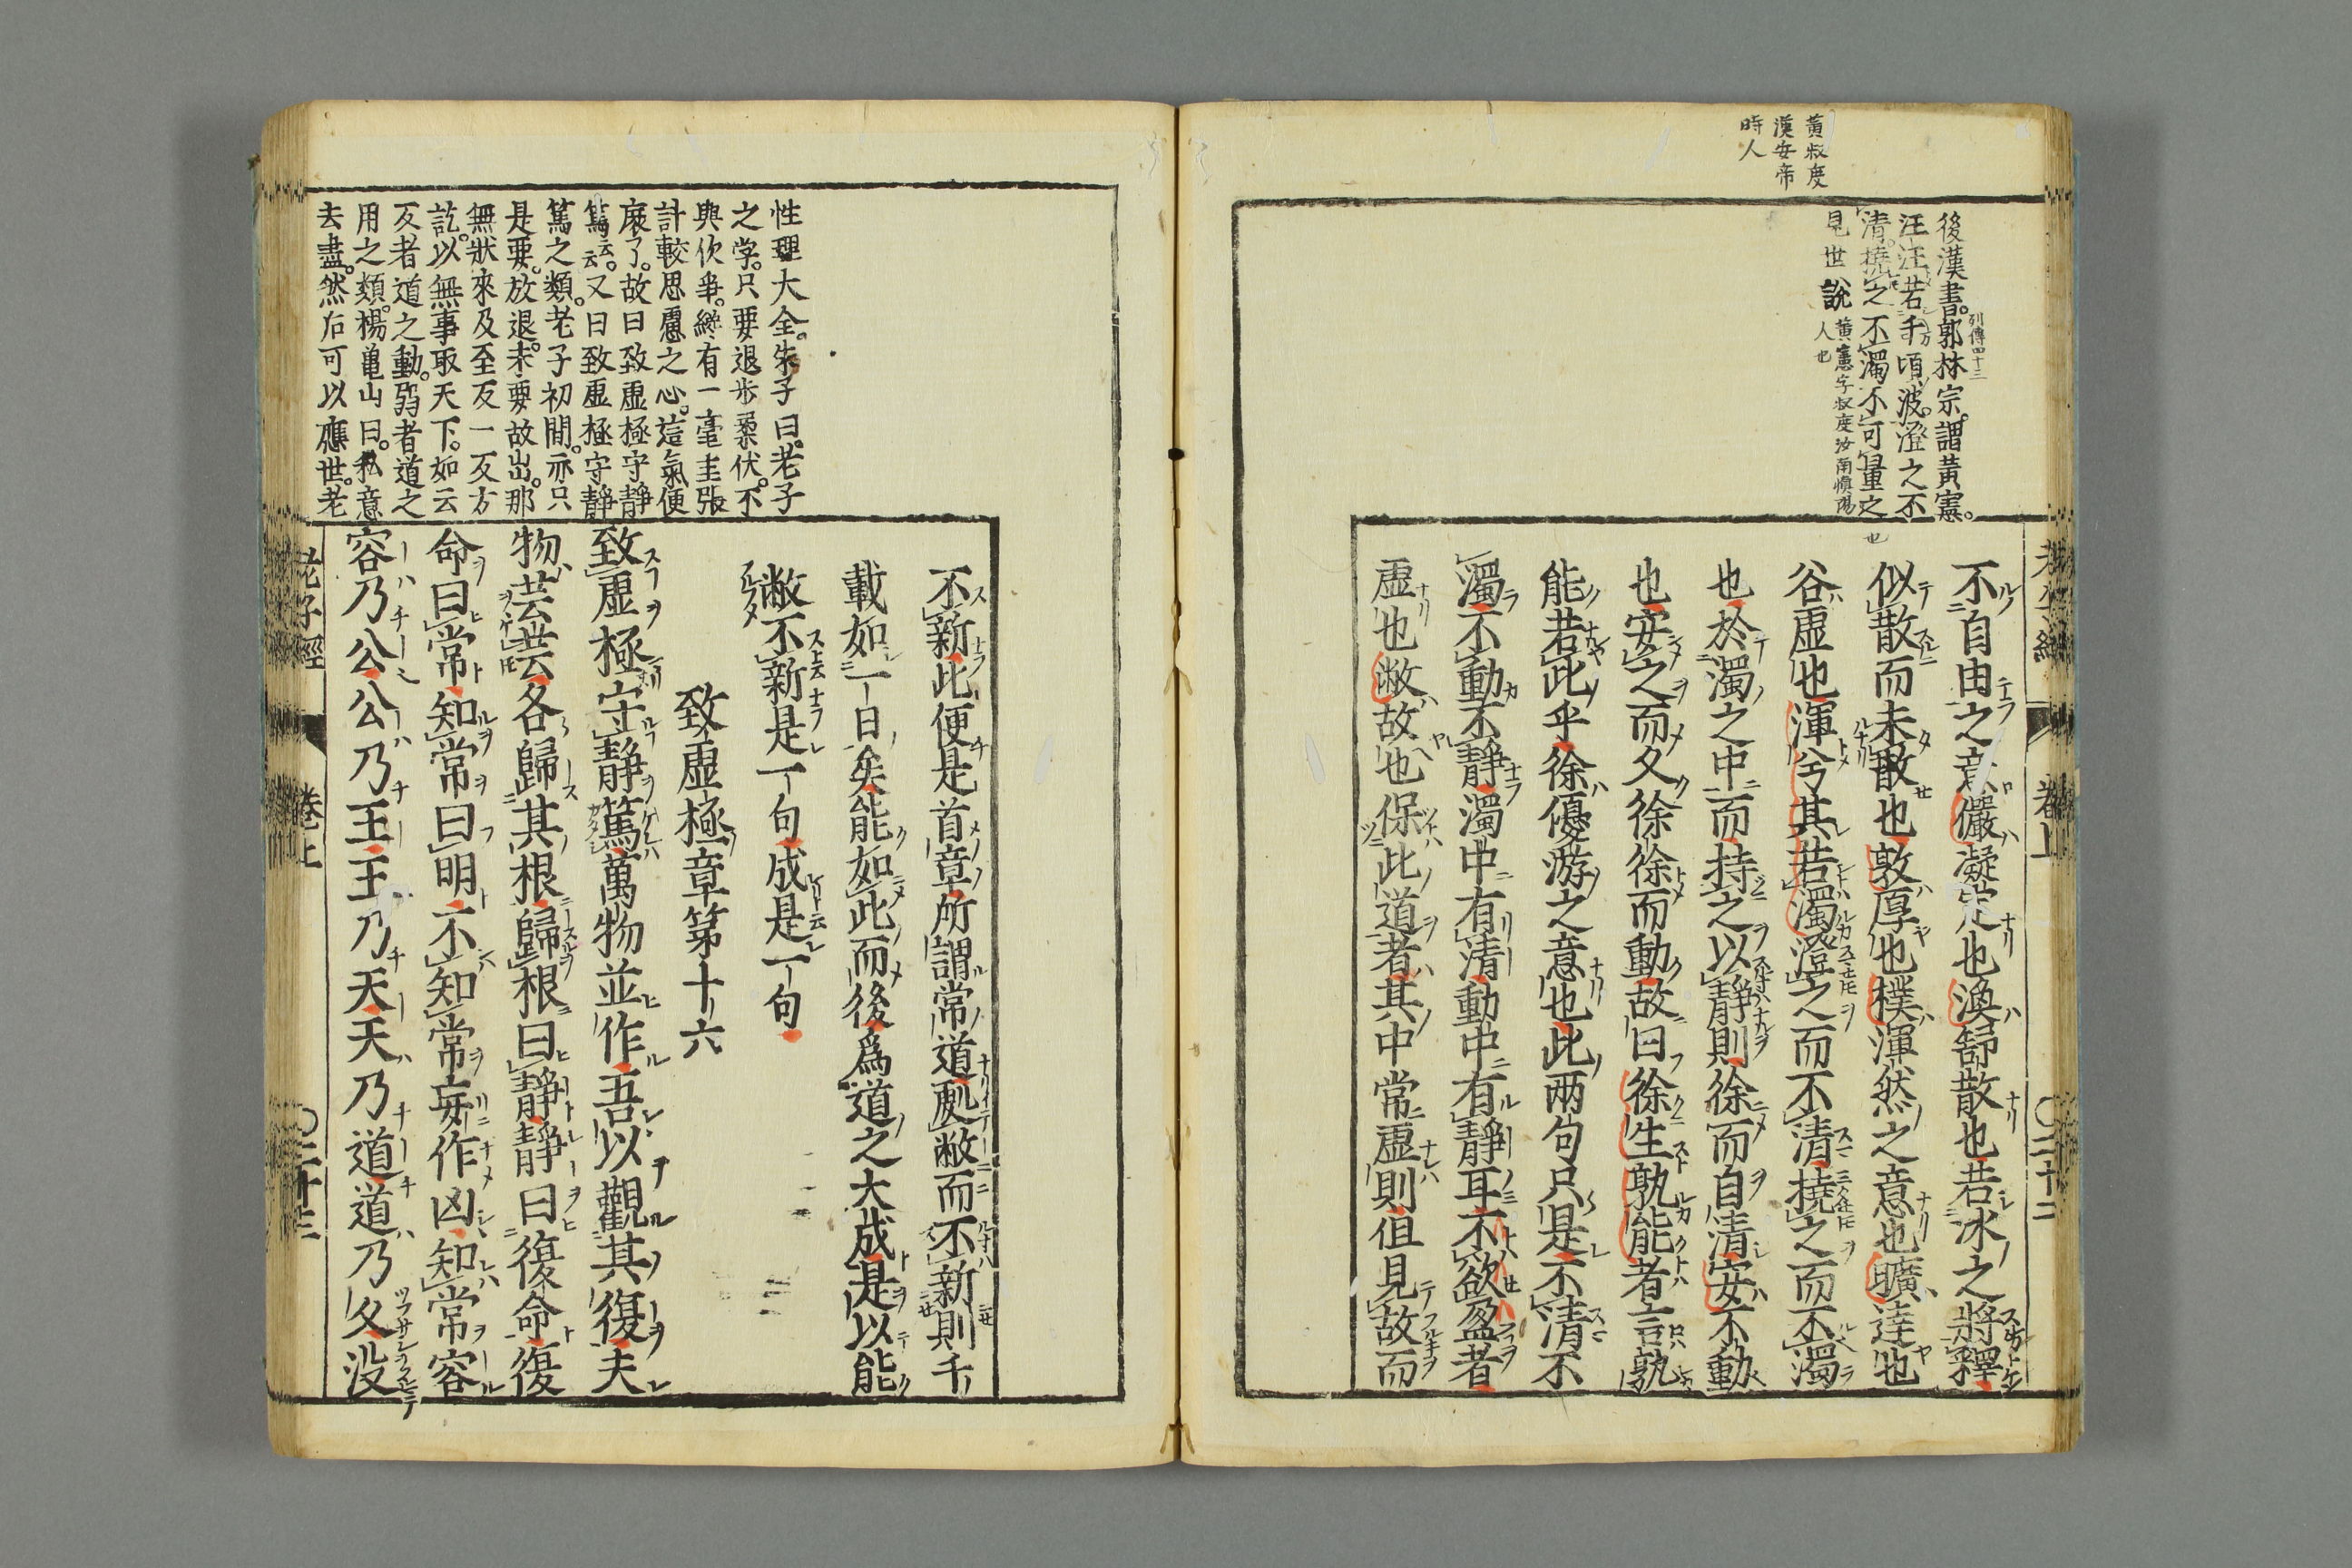 黃叔度
漢安帝
時人
後漢書。郭林宗。謂黃憲。
列傳四十三
汪汪若千頃波。澄之不
清。撓之不濁不可量之
也
見世說
黃憲字叔度汝南愼陽
人也
老子經 卷上 〇二十二
不自由之意儼凝定也渙舒散也若冰之將釋
似散而未散也敦厚也樸渾然之意也曠達也
谷虛也渾兮其若濁澄之而不清撓之而不濁
也於濁之中而持之以靜則徐而自清安不動
也安之而久徐徐而動故曰徐生孰能者言孰
能若此乎徐優游之意也此兩句只是不清不
濁不動不靜濁中有清動中有靜耳不欲盈者
虛也敝故也保此道者其中常虛則但見故而
不新此便是首章所謂常道処敝而不新則千
載如一日矣能如此而後爲道之大成是以能
敝不新是一句成是一句
致虛極章第十六
致虛極守靜篤萬物並作吾以觀其復夫
物芸芸各歸其根歸根曰靜靜曰復命復
命曰常知常曰明不知常妄作凶知常容
容乃公公乃王王乃天天乃道道乃久没
性理大全。朱子曰。老子
之学。只要退步柔伏。不
與伱爭。纔有一毫主張
計較思慮之心。這氣便
麄了。故曰致虛極守靜
篤云云。又曰致虛極守靜
篤之類。老子初間。亦只
是要。放退。未要故出。那
無狀來及至反一反方
說。以無事取天下。如云
反者道之動。弱者道之
用之類。楊亀山曰。私意
去盡。然后可以應世。老
老子經 卷上 〇二十三